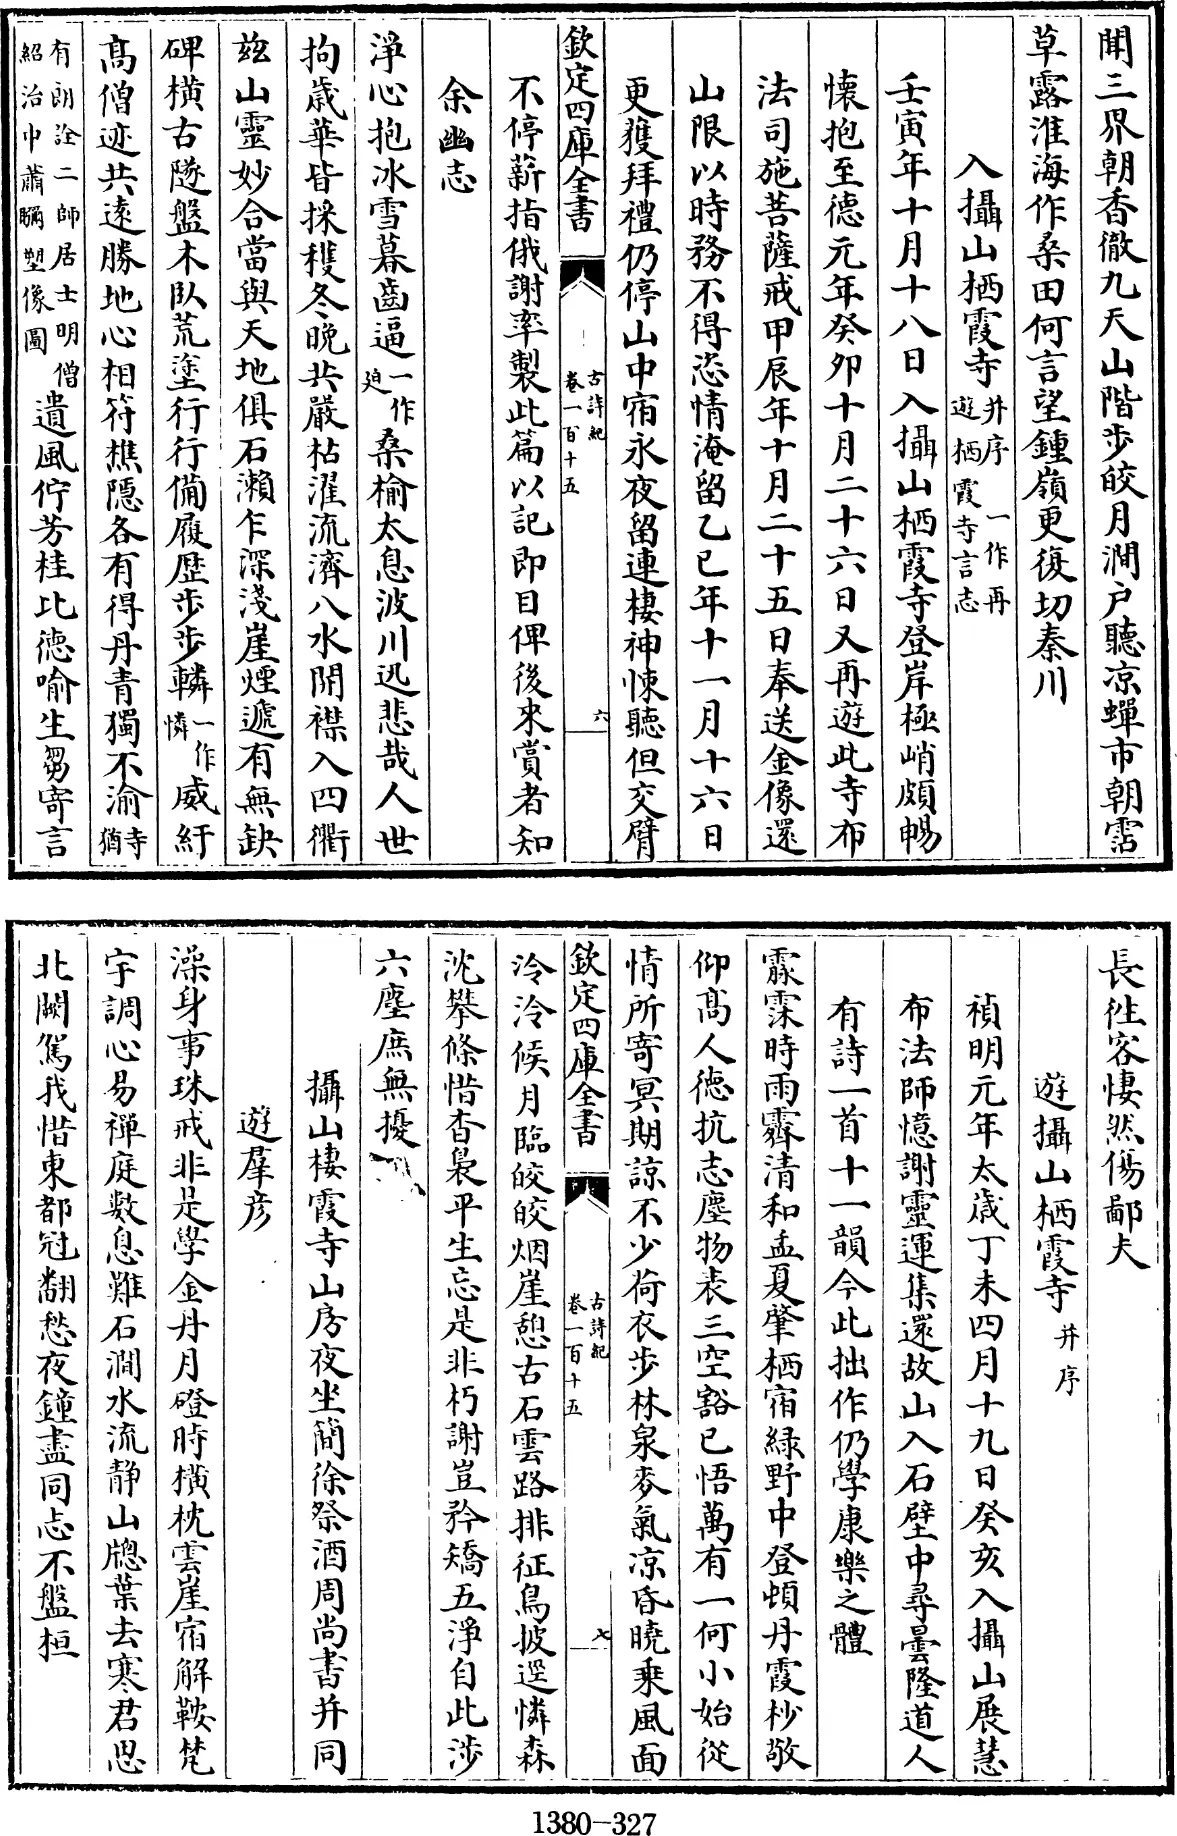 聞三界朝香徹九天山階步皎月澗户聽凉蟬市朝霑
草露淮海作桑田何言望鍾嶺更復切秦川
入攝山栖霞寺并序 一作再遊栖霞寺言志
壬寅年十月十八日入攝山栖霞寺登岸極峭頗暢
懷抱至德元年癸卯十月二十六日又再遊此寺布
法司施菩薩戒甲辰年十月二十五日奉送金像還
山限以時務不得恣情淹留乙巳年十一月十六日
更獲拜禮仍停山中宿永夜留連棲神悚聽但交臂
欽定四庫全書 古詩紀卷一百十五 六
不停薪指俄謝率製此篇以記即目俾後來賞者知
余幽志
淨心抱冰雪暮齒逼一作廹桑榆太息波川迅悲哉人世
拘歲華皆採穫冬晚共嚴枯濯流濟八水開襟入四衢
兹山靈妙合當與天地俱石瀨乍深淺崖煙遞有無缺
碑橫古隧盤木臥荒塗行行備履歷步步轔一作憐威紆
髙僧迹共遠勝地心相符樵隠各有得丹青獨不渝寺猶
有朗詮二師居士明僧紹治中蕭𦕈塑像圖遺風佇芳桂比德喻生芻寄言
長徃客悽然傷鄙夫
遊攝山栖霞寺并序
禎明元年太歲丁未四月十九日癸亥入攝山展慧
布法師憶謝靈運集還故山入石壁中尋曇隆道人
有詩一首十一韻今此拙作仍學康樂之體
霡霂時雨霽清和孟夏肇栖宿緑野中登頓丹霞杪敬
仰髙人德抗志塵物表三空豁已悟萬有一何小始從
情所寄冥期諒不少荷衣步林泉麥氣凉昏曉乗風面
欽定四庫全書 古詩紀卷一百十五 七
泠泠候月臨皎皎烟崖憩古石雲路排征鳥披逕憐森
沈攀條惜杳裊平生忘是非朽謝豈矜矯五淨自此涉
六塵庶無擾
攝山棲霞寺山房夜坐簡徐祭酒周尚書并同
遊羣彦
澡身事珠戒非是學金丹月磴時橫枕雲崖宿解鞍梵
宇調心易禪庭數息難石澗水流静山牕葉去寒君思
北闕駕我惜東都冠翻愁夜鐘盡同志不盤桓
1380-327